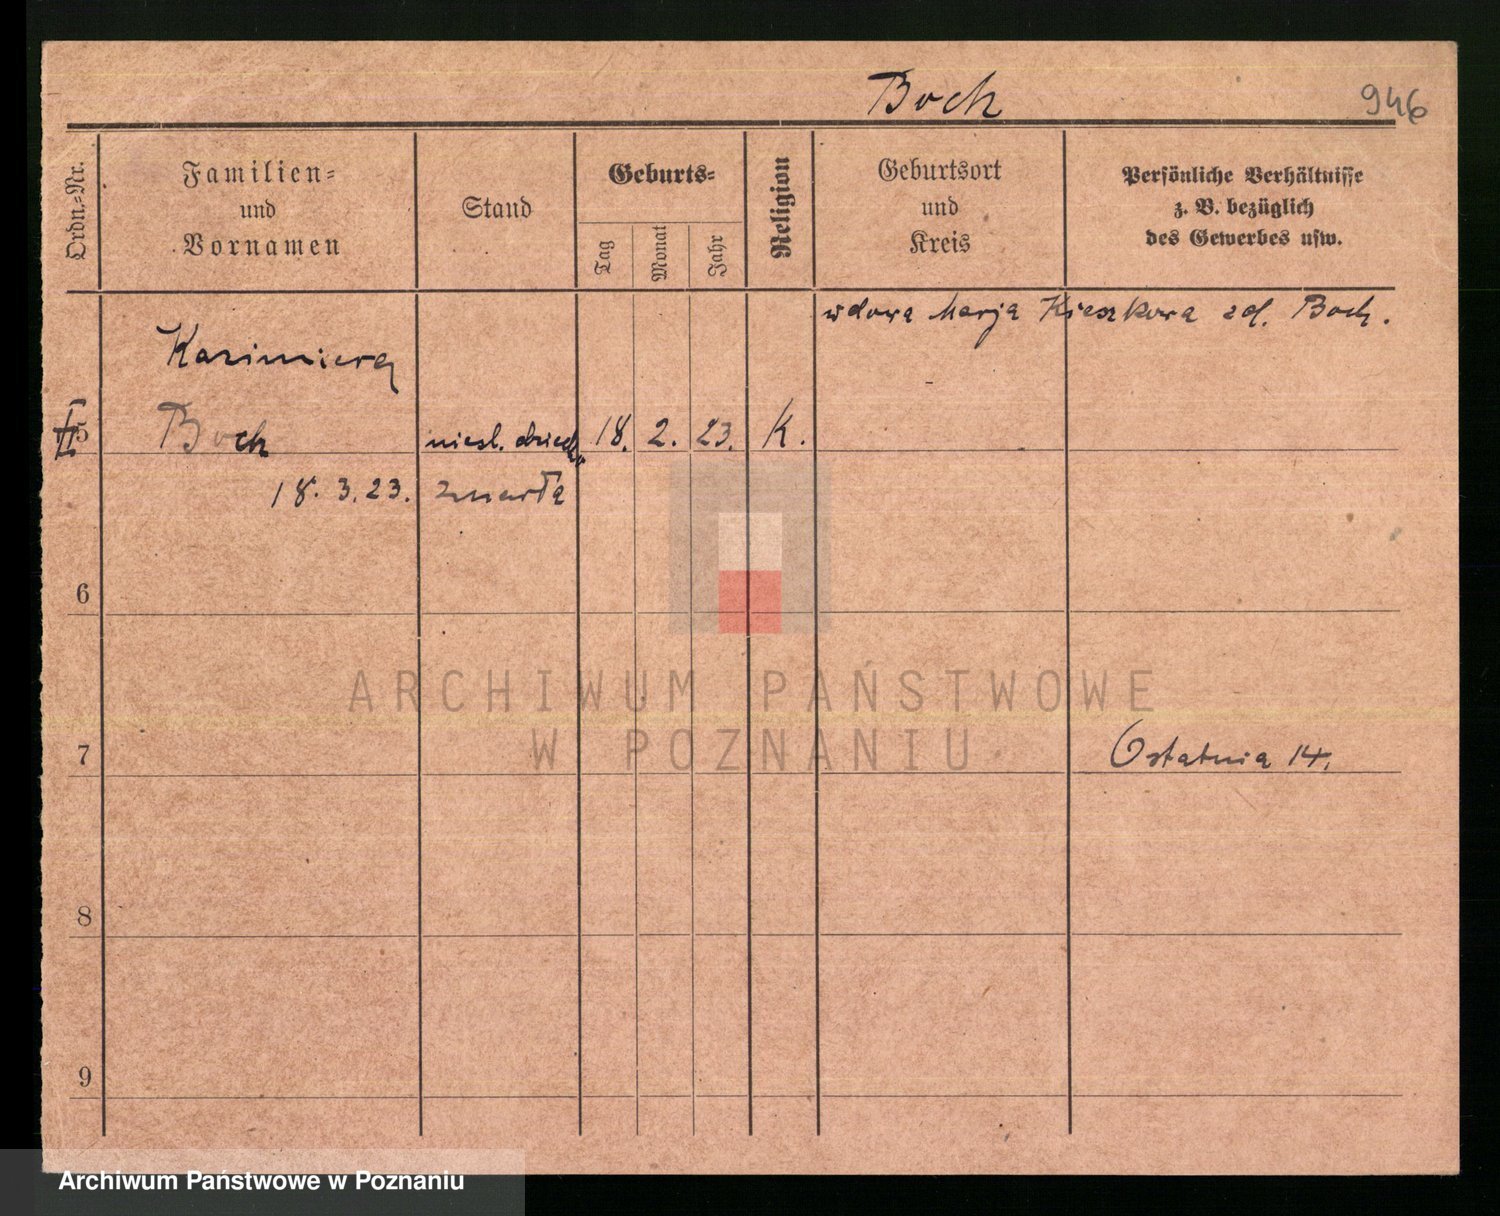 Boch
946
Ordn.-Nr.
Familien-
und
Vornamen
Stand
Geburts-
Tag
Monat
Jahr
Religion
Geburtsort
und
Kreis
Persönliche Verhältnisse
z. B. bezüglich
des Gewerbes usw.
wdowa Marja Kieszkowa zd. Boch.
Kazimiera
5 Boch niesl. dziecko 18. 2. 23. K.
18. 3. 23. zmarła
6
7 Ostatnia 14.
8
9
ARCHIWUM PAŃSTWOWE
W POZNANIU
Archiwum Państwowe w Poznaniu